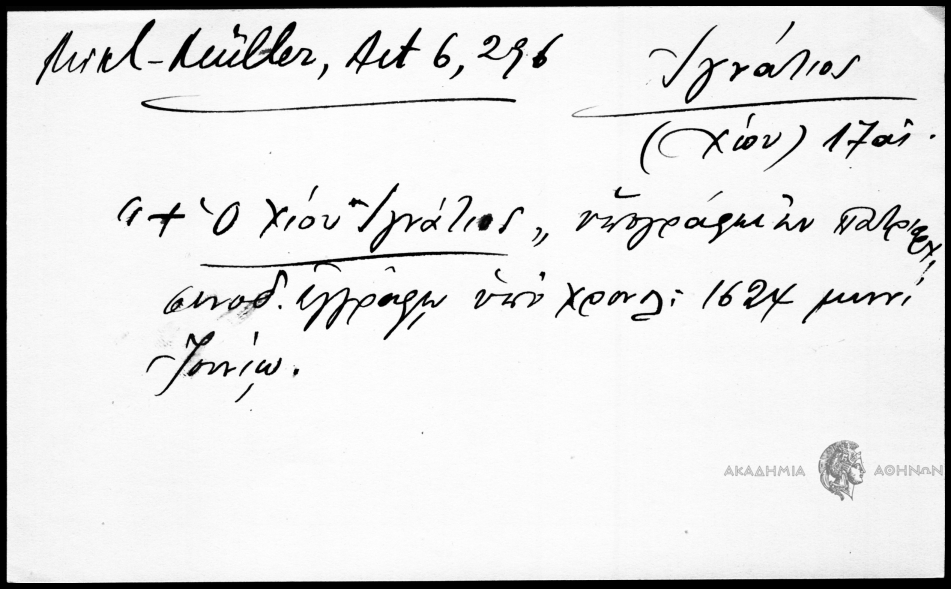 Mikl-Müller, Act 6, 296
Ἰγνάτιος
(Χίου) 17 αἰ.
"+ Ὁ Χίου Ἰγνάτιος,, ὑπογράφει ἐν πατριαρχ.
συνοδ. ἐγγράφῳ ὑπὸ χρονολ: 1624 μηνὶ
Ἰουνίῳ.
ΑΚΑΔΗΜΙΑ ΑΘΗΝΩΝ